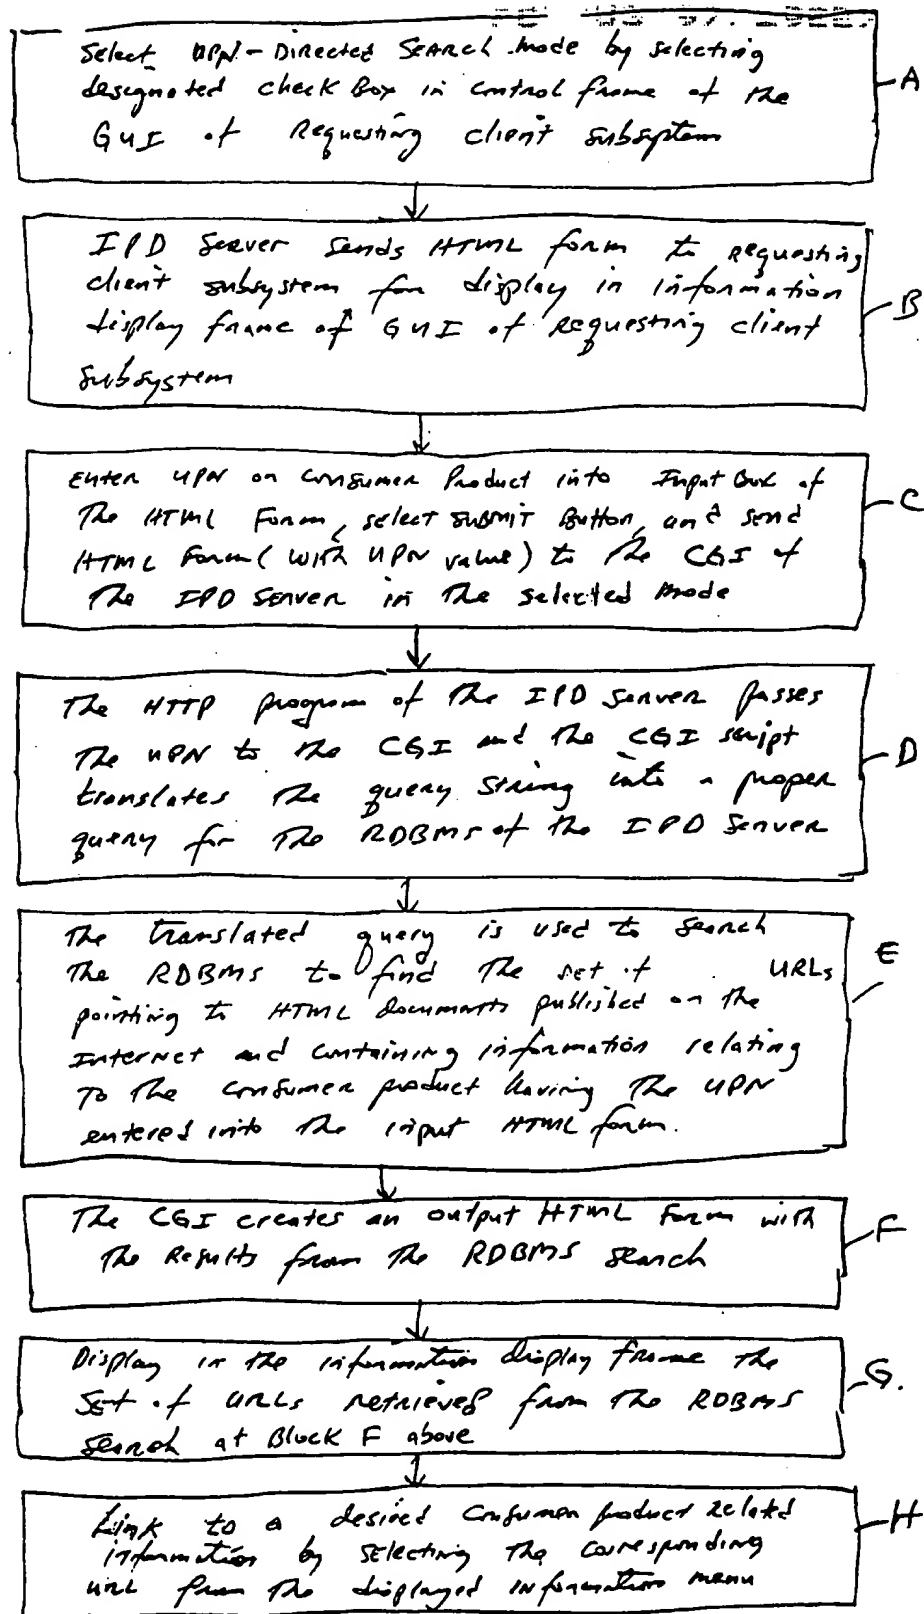 Select UPN-Directed Search mode by selecting
designated check Box in control frame of the
GUI of Requesting client subsystem
A
IPD Server sends HTML form to requesting
client subsystem for display in information
display frame of GUI of requesting client
subsystem
B
Enter UPN on Consumer Product into Input Box of
The HTML Form, select SUBMIT Button, and send
HTML Form (with UPN value) to the CGI of
The IPD Server in the selected mode
C
The HTTP program of the IPD Server passes
The UPN to the CGI and the CGI script
translates the query string into a proper
query for the RDBMS of the IPD Server
D
The translated query is used to search
The RDBMS to find the set of URLs
pointing to HTML documents published on the
Internet and containing information relating
To the consumer product having the UPN
entered into the input HTML form.
E
The CGI creates an output HTML Form with
the Results from the RDBMS search
F
Display in the information display frame the
Set of URLs retrieved from the RDBMS
search at Block F above
G.
Link to a desired Consumer product related
information by selecting the corresponding
URL from the displayed information menu
H